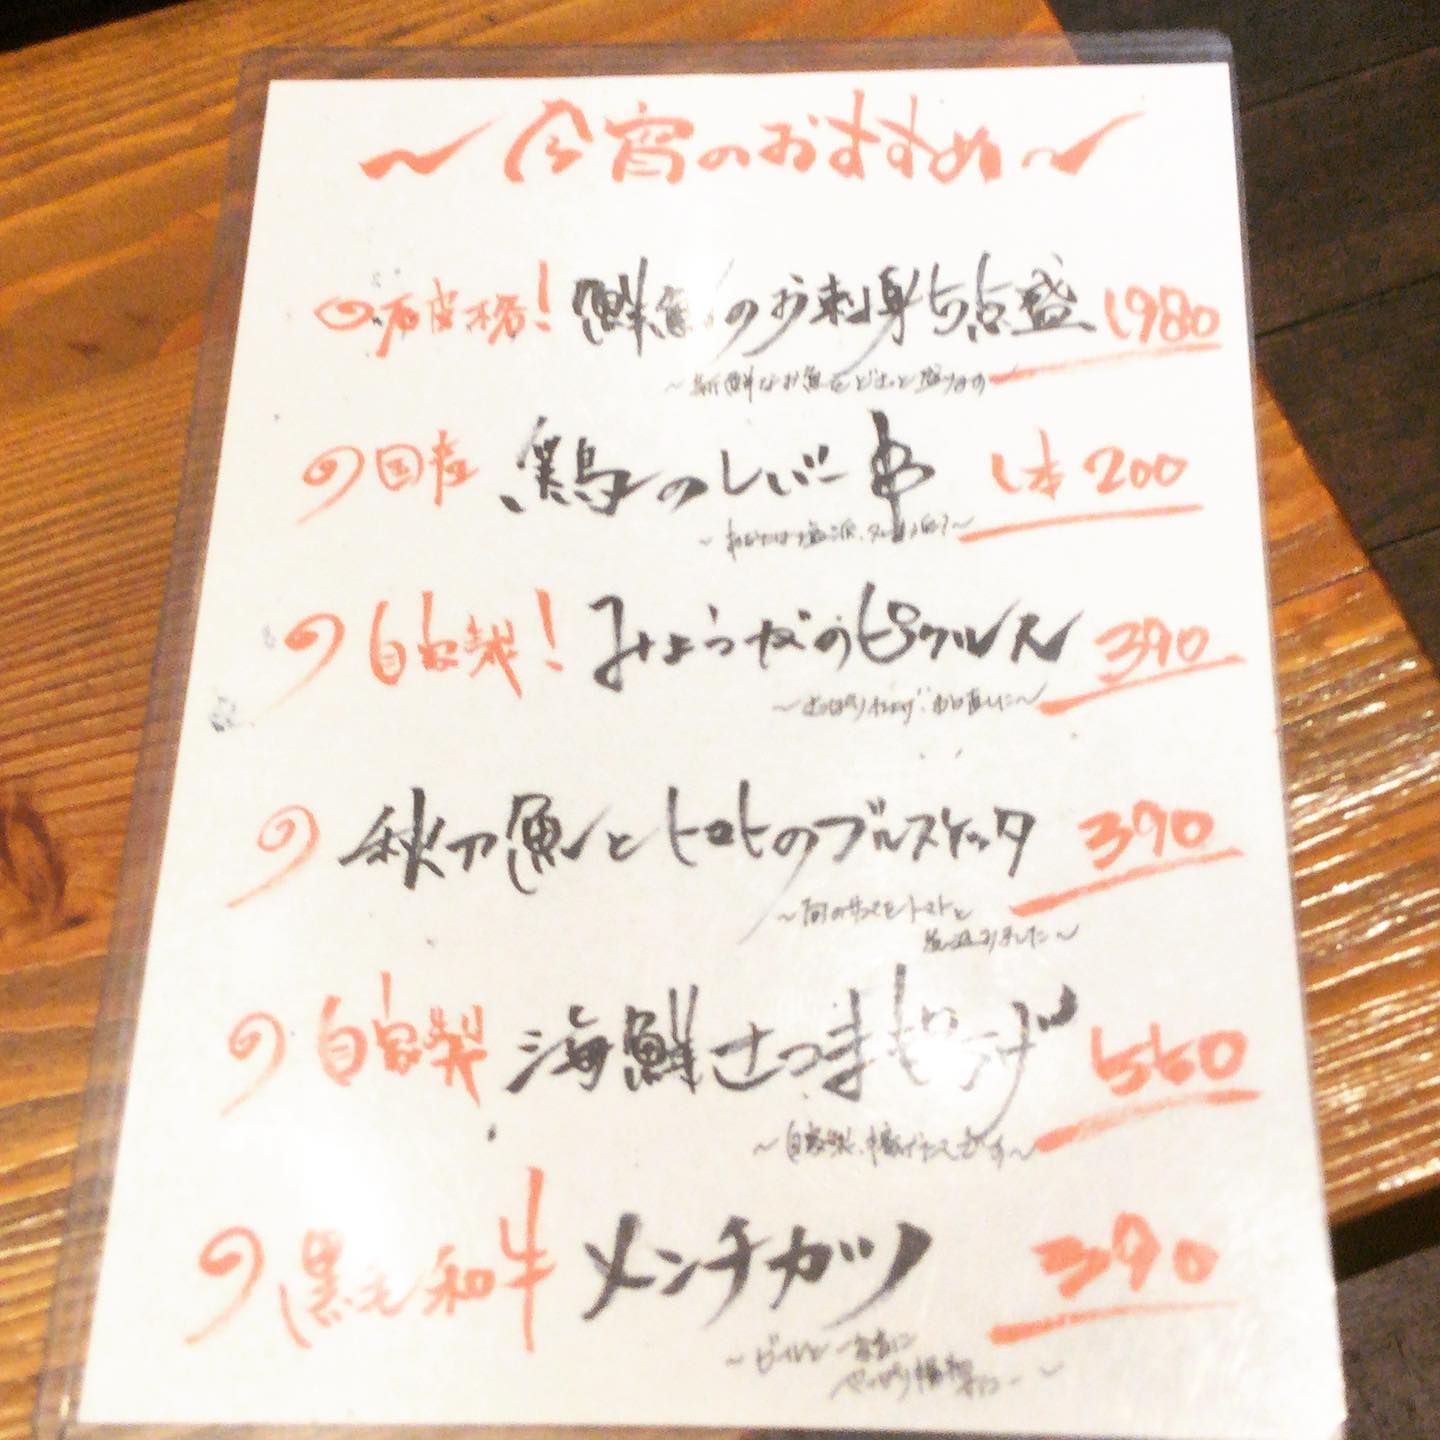 ～今宵のおすすめ～
破格! 鮮魚のお刺身5点盛 1980
～新鮮なお魚をどさっと盛ります
国産 鶏のレバー串 1本200
自家製! みょうがのピクルス 390
～さっぱりお口直しに～
秋刀魚とトマトのブルスケッタ 390
～旬のサンマをトマトと
煮込みました～
自家製 海鮮さつま揚げ 550
～自家製、です～
黒毛和牛 メンチカツ 390
～ビールと一緒に